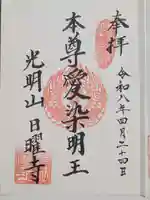 奉拝
令和八年四月二十四日
本尊愛染明王
光明山日曜寺